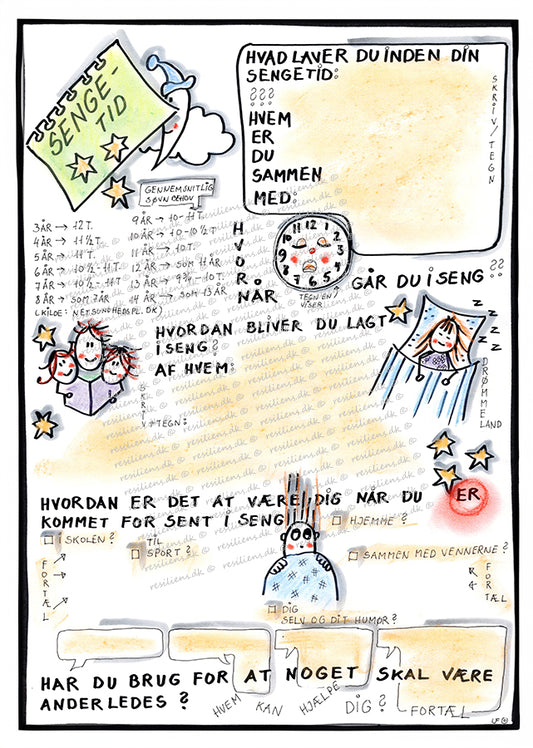 SENGE-
TID
HVAD LAVER DU INDEN DIN
SENGETID:
???
HVEM
ER
DU
SAMMEN
MED:
SKRIV/TEGN
GENNEMSNITLIG
SØVNBEHOV
3 ÅR → 12 T.
4 ÅR → 11 ½ T.
5 ÅR → 11 T.
6 ÅR → 10 ½ - 11 T.
7 ÅR → 10 ½ - 11 T
8 ÅR → SOM 7 ÅR
9 ÅR → 10 - 11 T.
10 ÅR → 10 - 10 ½ T
11 ÅR → 10 T.
12 ÅR → SOM 11 ÅR
13 ÅR → 9 ¾ - 10 T.
14 ÅR → SOM 13 ÅR
(KILDE: NETSUNDHEDSPL.DK)
HVOR-
NÅR
12 1 2 3 4 5 6 7 8 9 10 11
TEGN EN/
VISER
GÅR DU I SENG ??
HVORDAN BLIVER DU LAGT
I SENG?
AF HVEM:
SKRIV + TEGN:
Z Z Z Z
DRØMMELAND
HVORDAN ER DET AT VÆRE DIG NÅR DU ER
KOMMET FOR SENT I SENG
HJEMME?
I SKOLEN?
TIL
SPORT?
SAMMEN MED VENNERNE?
FORTÆL
FORTÆL
DIG
SELV OG DIT HUMØR?
HAR DU BRUG FOR AT NOGET SKAL VÆRE
ANDERLEDES?
HVEM KAN HJÆLPE DIG? FORTÆL
resiliens.dk ©